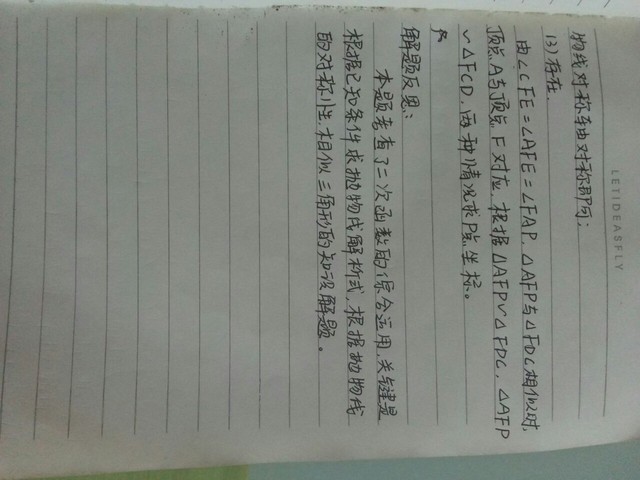 LETIDEASFLY
物线对称轴由对称即可;
(3)存在.
由∠CFE=∠AFE=∠FAP,△AFP与△FDC相似时,
顶点A与顶点F对应,根据△AFP∽△FDC,△AFP
∽△FCD,两种情况求P点坐标。
解题反思:
本题考查了二次函数的综合运用,关键是
根据已知条件求抛物线解析式,根据抛物线
的对称性,相似三角形的知识解题。